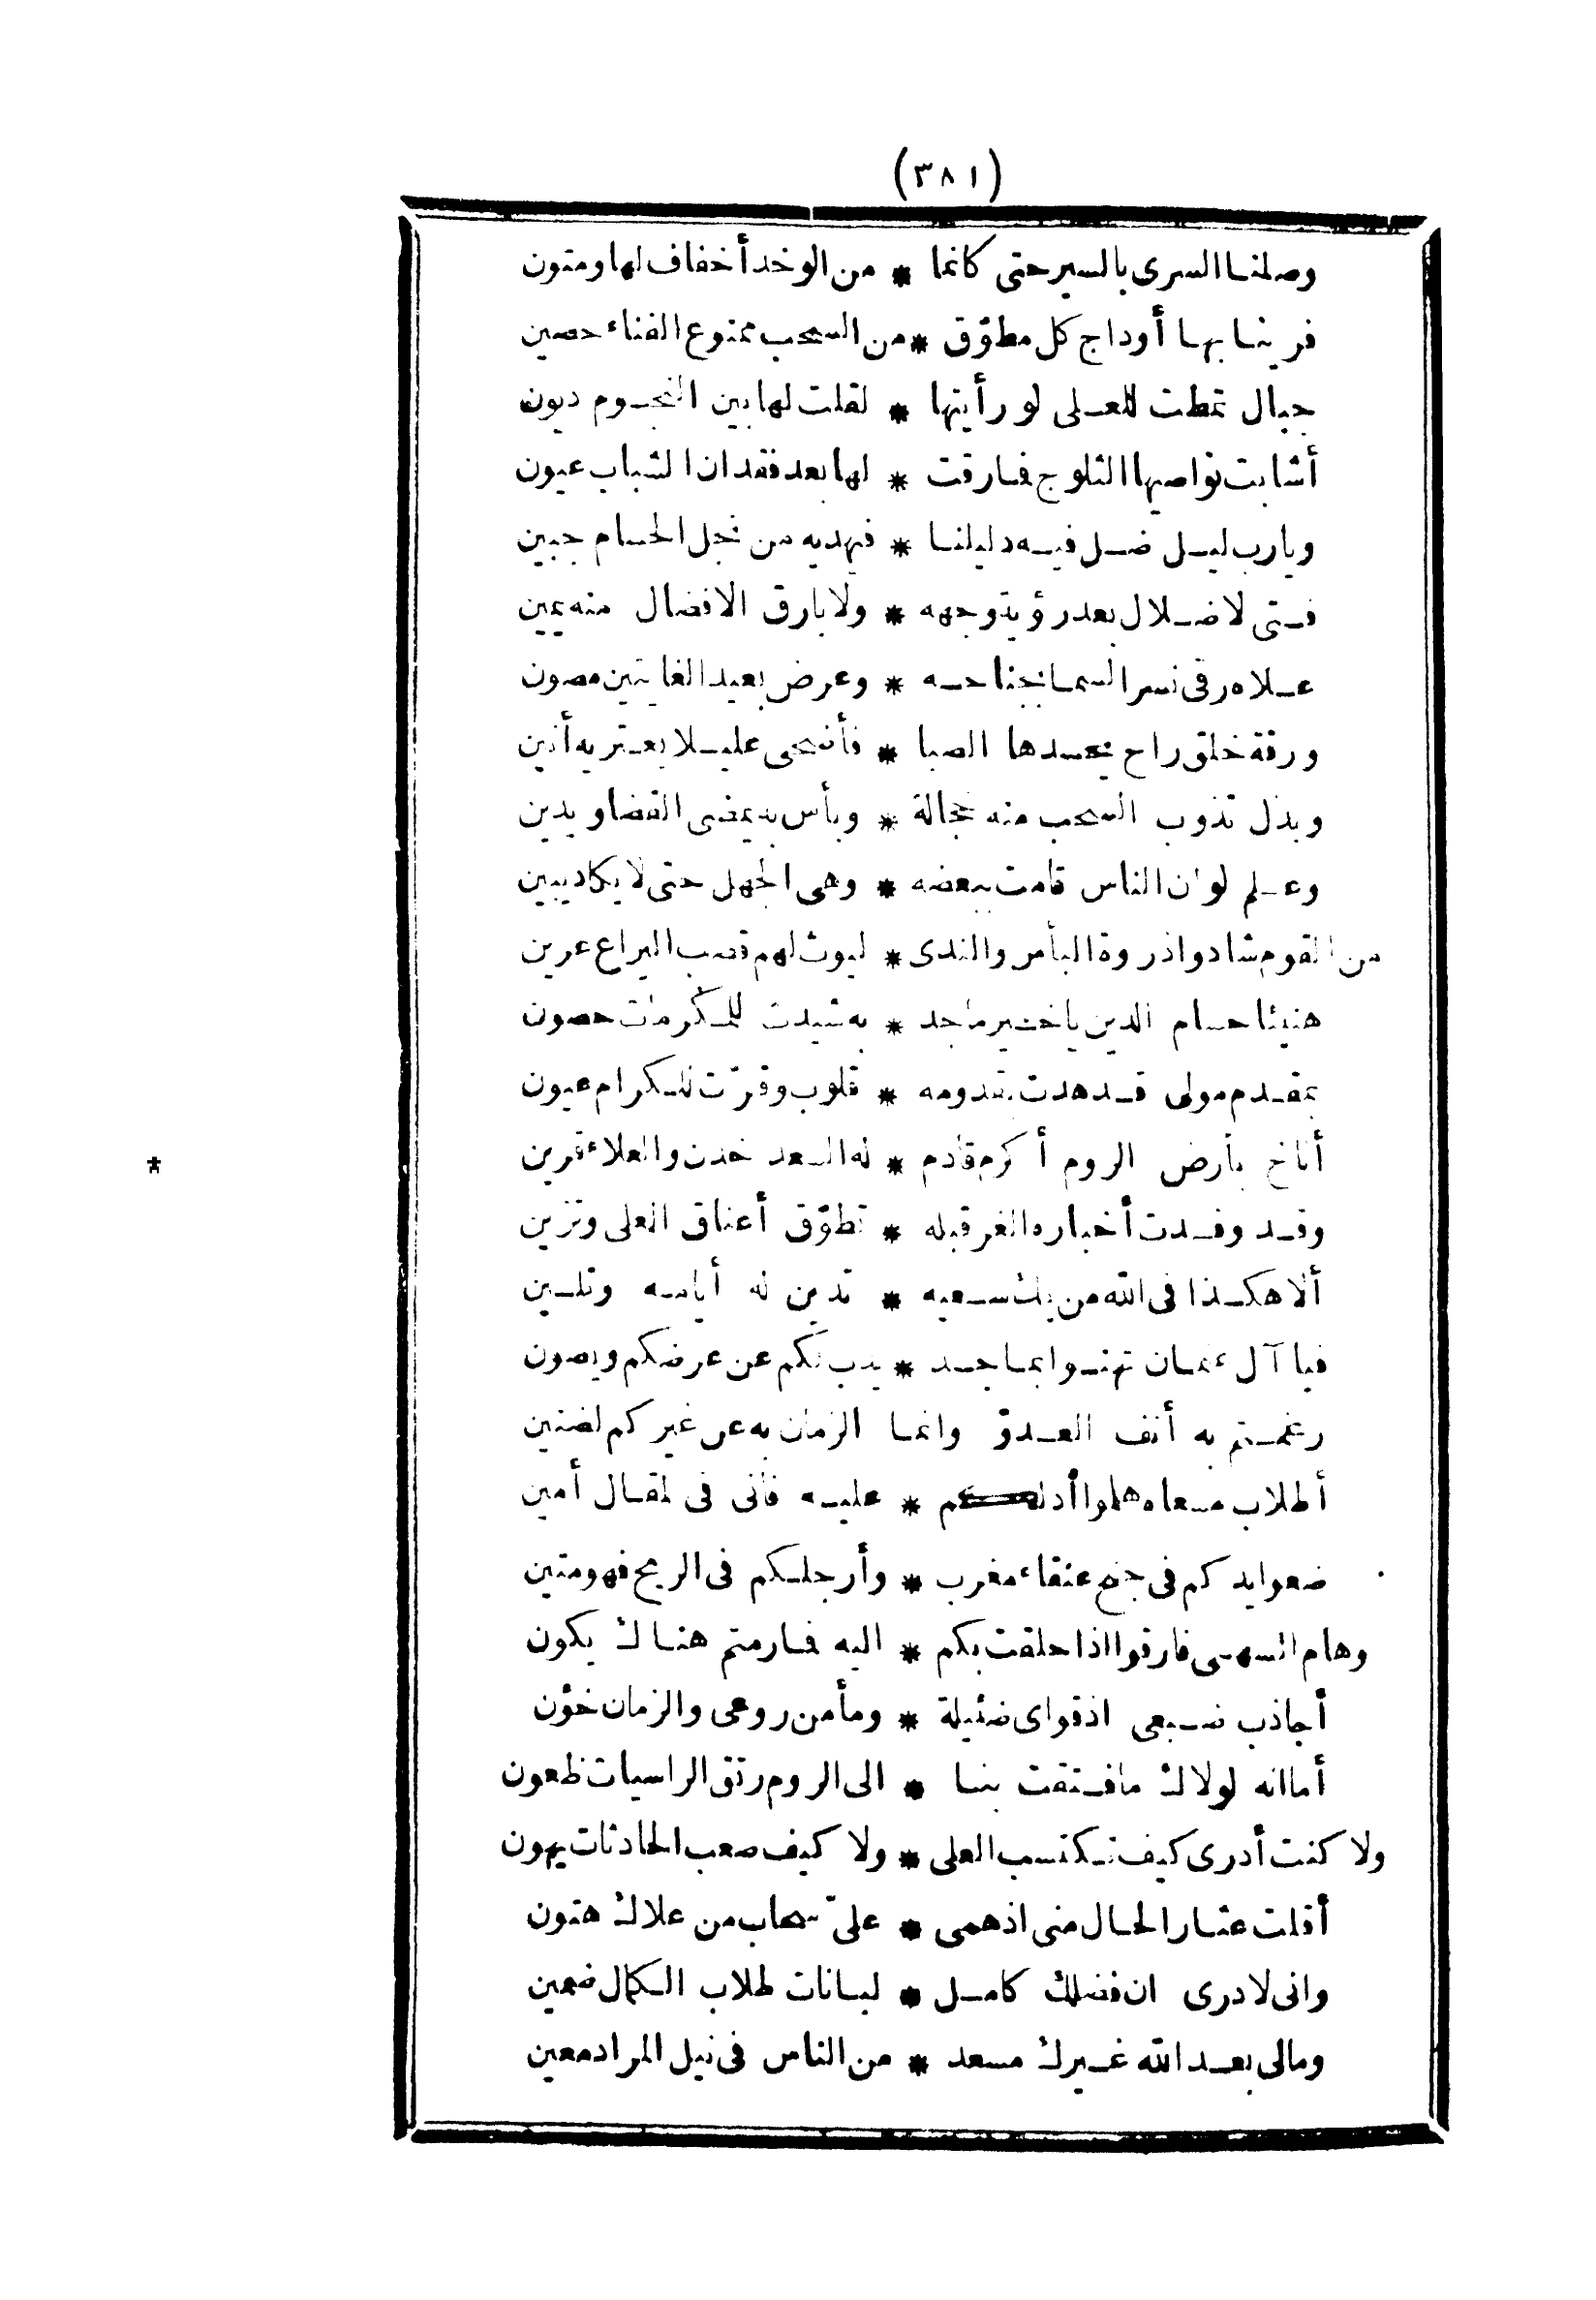 (٣٨١)
وصلنا السرى بالسير حتى كانما * من الوخد أخفاف لها ومتون
فرينا بها أوداج كل مطوّق * من السحب ممنوع الفناء حصين
جبال تمطت للعلى لو رأيتها * لقلت لها بين النجوم ديون
أشابت نواصيها الثلوج فارقت * لها بعد فقدان الشباب عيون
ويارب ليل ضل فيه دليلنا * فيهديه من نجل الحسام جبين
فتى لا ضلال بعد رؤية وجهه * ولا بارق الافضال منه يمين
علاه رقى نسر السما بجناحه * وعرض بعيد الغايتين مصون
ورقة خلق راح يحسدها الصبا * فأضحى عليلا يعتريه أنين
وبذل تذوب السحب منه خجالة * وبأس به يمضى القضا ويدين
وعلم لو ان الناس قامت ببعضه * وهى الجهل حتى لا يكاد يبين
من القوم شادوا ذروة البأس والندى * ليوث لهم قصب اليراع عرين
هنيئا حسام الدين يا خير ماجد * به شيدت للمكرمات حصون
بمقدم مولى قد هدت بقدومه * قلوب وقرّت للكرام عيون
أناخ بأرض الروم أكرم قادم * له السعد خدن والعلاء قرين
وقد وفدت أخباره الغر قبله * تطوّق أعناق العلى وتزين
ألا هكذا فى الله من يك سعيه * تدين له أيامه وتلين
فيا آل عثمان تهنوا بماجد * يذب لكم عن عرضكم ويصون
رغمتم به أنف العدوّ وانما الزمان به عن غيركم لضنين
أطلاب مسعاه هلموا أدلكم * عليه فانى فى المقال أمين
ضعوا يدكم فى جنح عنقاء مغرب * وأرجلكم فى الريح فهو متين
وهام السهى فارقوا اذا حلقت بكم * اليه فارمتم هناك يكون
أجاذب ضبعى اذ قواى ضئيلة * ومأمن روعى والزمان خؤن
أما انه لولاك ما فتقت بنا * الى الروم رتق الراسيات ظعون
ولا كنت أدرى كيف تكتسب العلى * ولا كيف صعب الحادثات يهون
أقلت عثار الحال منى اذ همى * علىّ سحاب من علاك هتون
وانى لادرى ان فضلك كامل * لبانات طلاب الكمال ضمين
ومالى بعد الله غيرك مسعد * من الناس فى نيل المراد معين